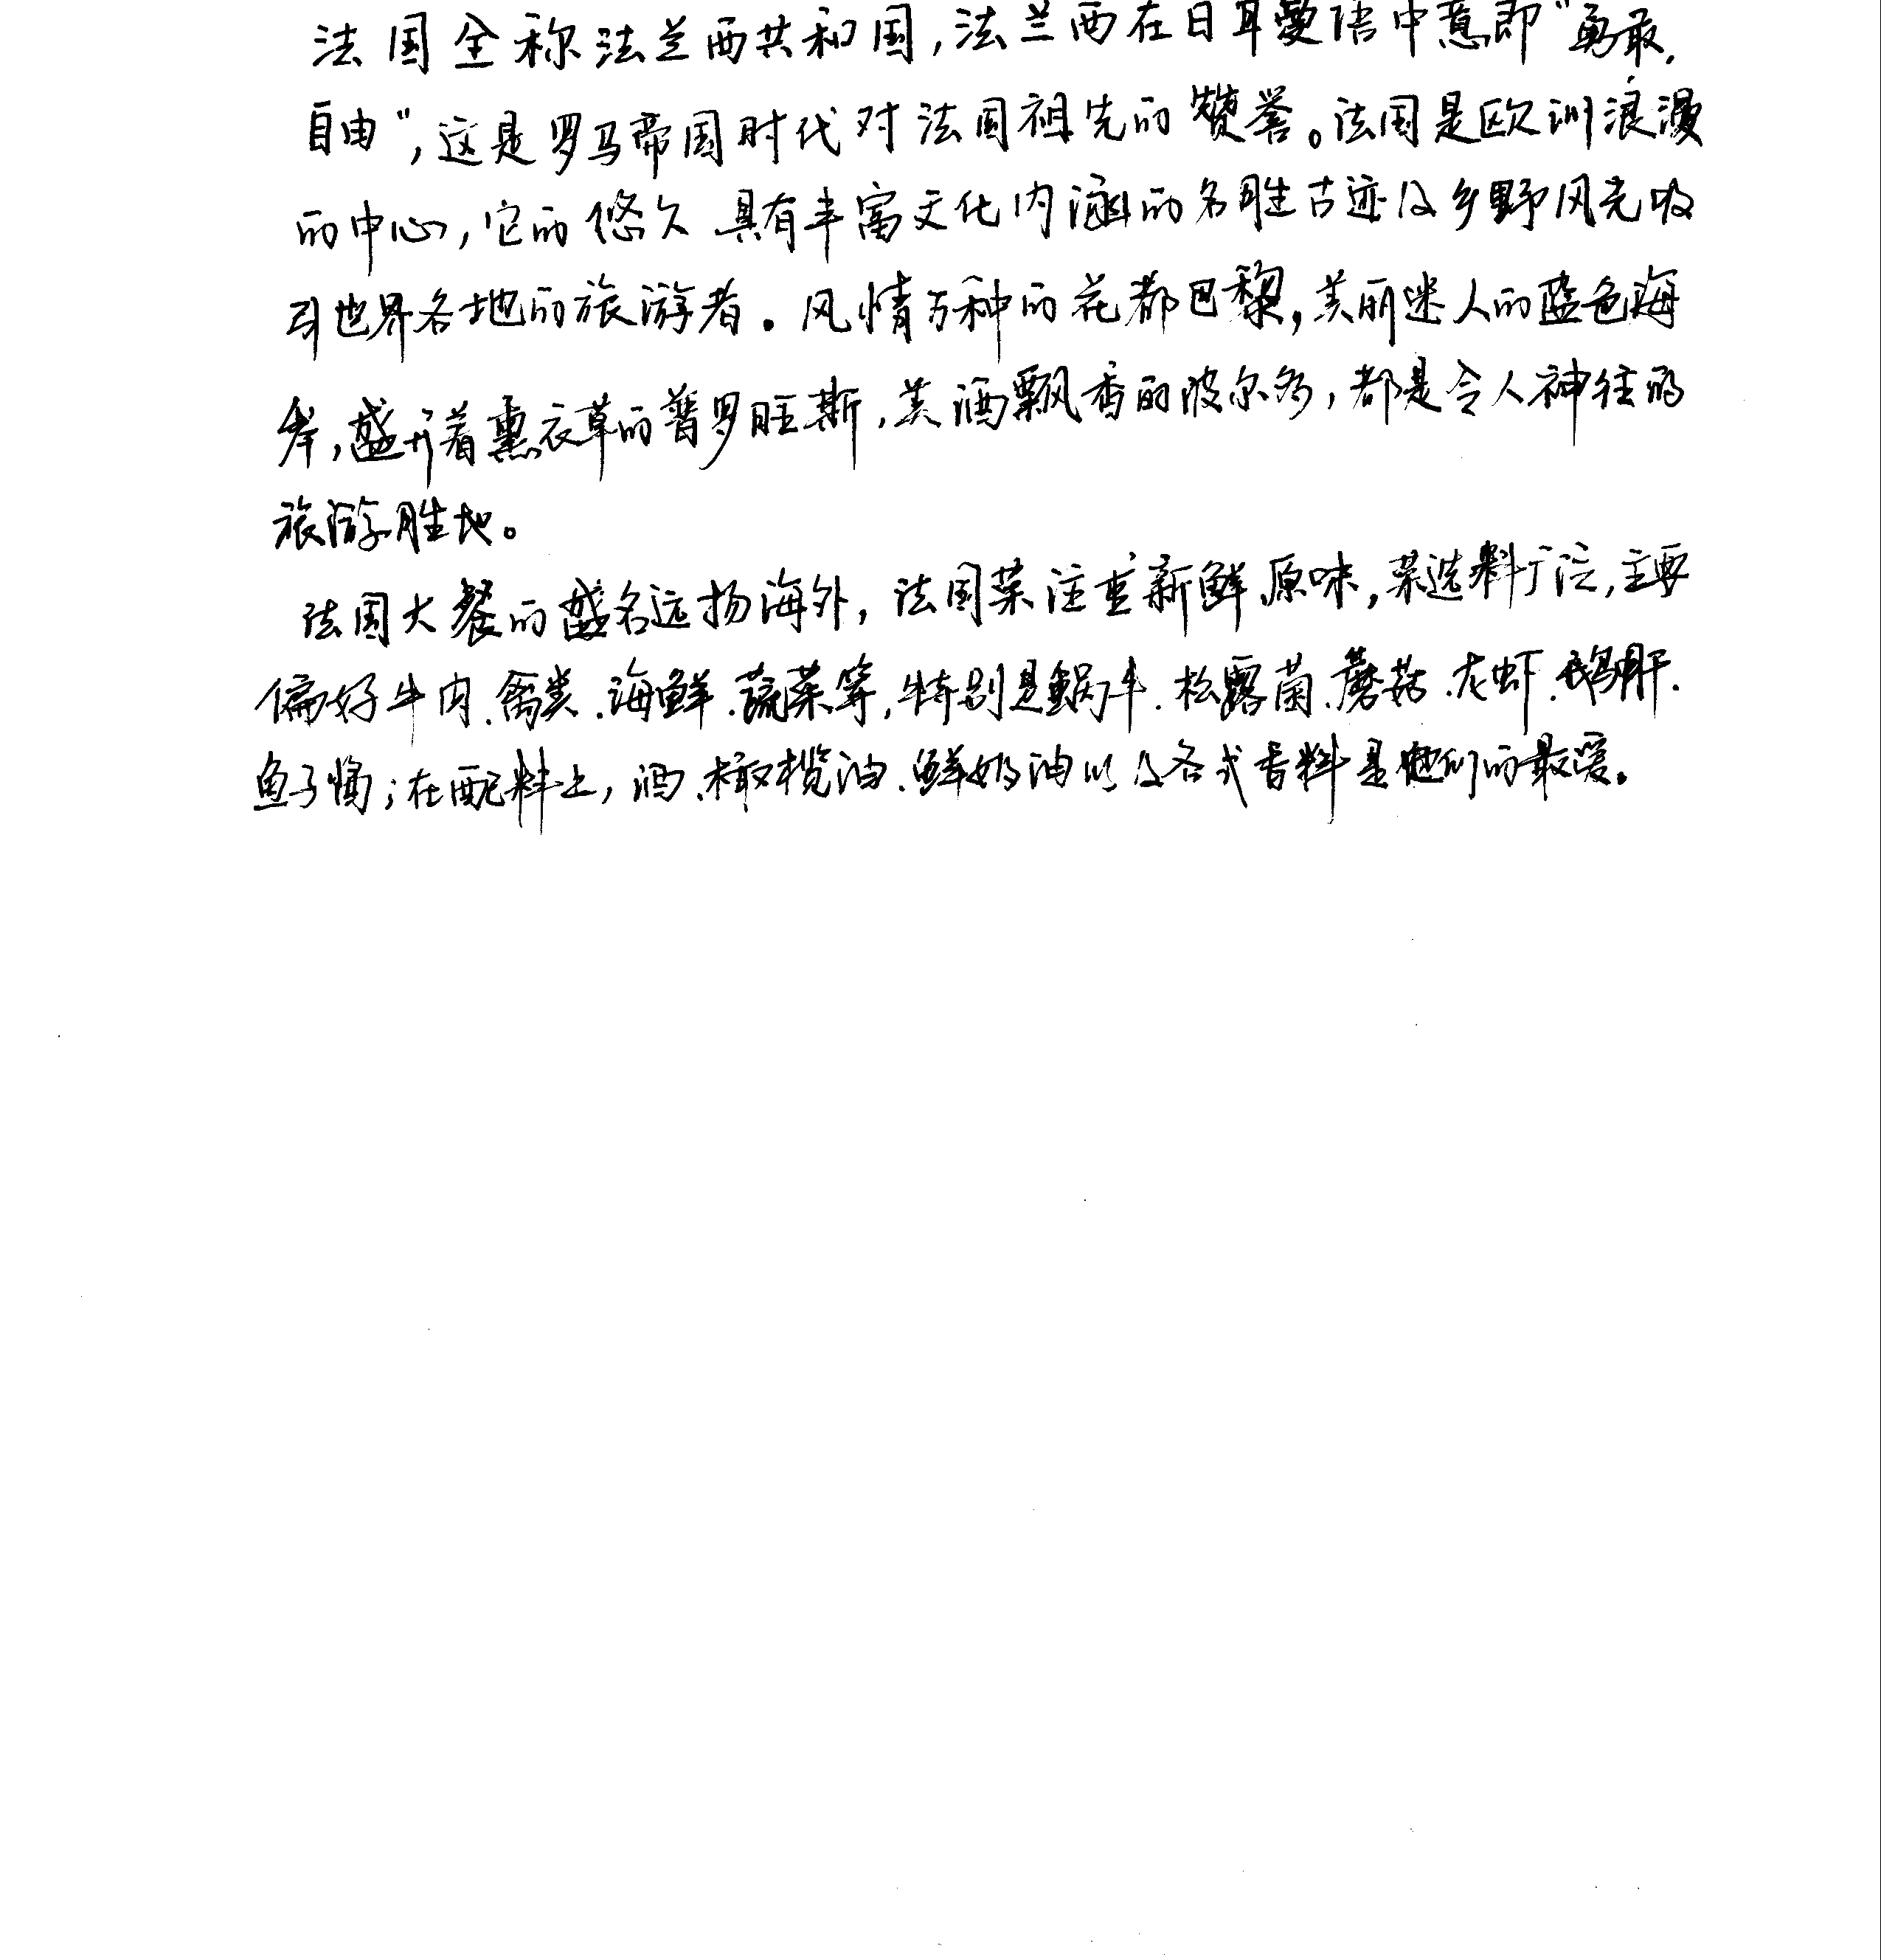 法国全称法兰西共和国,法兰西在日耳曼语中意即“勇敢.
自由”,这是罗马帝国时代对法国祖先的赞誉。法国是欧洲浪漫
的中心,它的悠久具有丰富文化内涵的名胜古迹及乡野风光吸
引世界各地的旅游者。风情万种的花都巴黎,美丽迷人的蓝色海
岸,盛开着熏衣草的普罗旺斯,美酒飘香的波尔多,都是令人神往的
旅游胜地。
法国大餐的盛名远扬海外,法国菜注重新鲜原味,菜选料广泛,主要
偏好牛肉.禽类.海鲜.蔬菜等,特别是蜗牛.松露菌.蘑菇.龙虾.鹅肝.
鱼子酱;在配料上,酒.橄榄油.鲜奶油以及各式香料是他们的最爱。